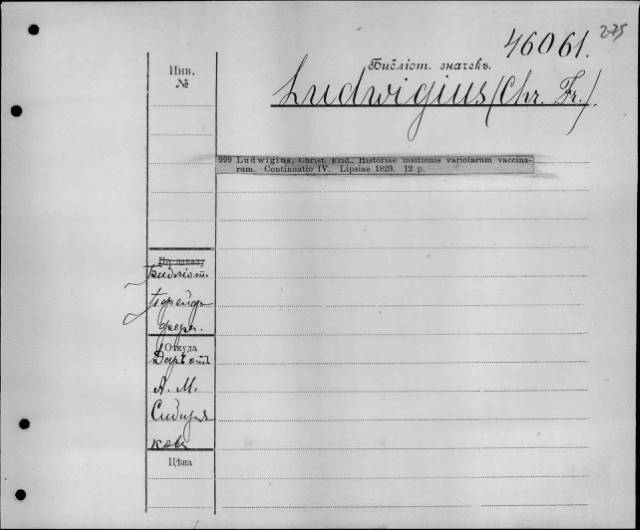 275
46061.
Инв.
№
Библіот. значекъ.
Ludwigius (Chr. Fr.).
999 Ludwigius, Christ. Frid., Historiae insitionis variolarum vaccina-
rum. Continuatio IV. Lipsiae 1823. 12 p.
По заказу
Библіот.
Пфейф-
фера.
Откуда
Даръ отъ
А. М.
Сибиря
кова
Цѣна